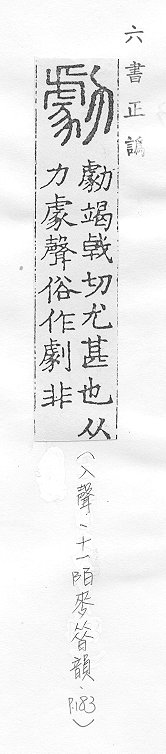 六書正譌
勮
勮竭戟切尤甚也从
力豦聲俗作劇非
(入聲、十一陌麥昔韻、P.183)